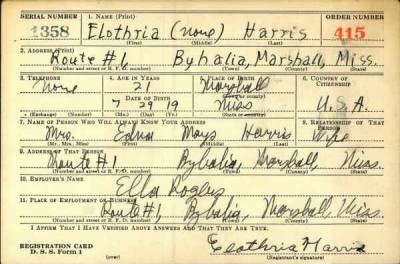 SERIAL NUMBER 1. NAME (Print) ORDER NUMBER
1358 Elothria (none) Harris 415
(First) (Middle) (Last)
2. ADDRESS (Print)
Route #1 Byhalia, Marshall, Miss.
(Number and street or R. F. D. number) (Town) (County) (State)
3. TELEPHONE 4. AGE IN YEARS 5. PLACE OF BIRTH 6. COUNTRY OF CITIZENSHIP
none 21 Marshall
DATE OF BIRTH (Town or county)
7 29 19 Miss U.S.A.
(Exchange) (Number) (Mo.) (Day) (Yr.) (State or country)
7. NAME OF PERSON WHO WILL ALWAYS KNOW YOUR ADDRESS 8. RELATIONSHIP OF THAT PERSON
Mrs. Edna Mays Harris Wife
(Mr., Mrs., Miss) (First) (Middle) (Last)
9. ADDRESS OF THAT PERSON
Route #1 Byhalia, Marshall, Miss.
(Number and street or R. F. D. number) (Town) (County) (State)
10. EMPLOYER'S NAME
Ella
11. PLACE OF EMPLOYMENT OR BUSINESS
Route #1, Byhalia, Marshall, Miss.
(Number and street or R. F. D. number) (Town) (County) (State)
I AFFIRM THAT I HAVE VERIFIED ABOVE ANSWERS AND THAT THEY ARE TRUE.
REGISTRATION CARD
D. S. S. Form 1
Elothria Harris
(Registrant's signature)